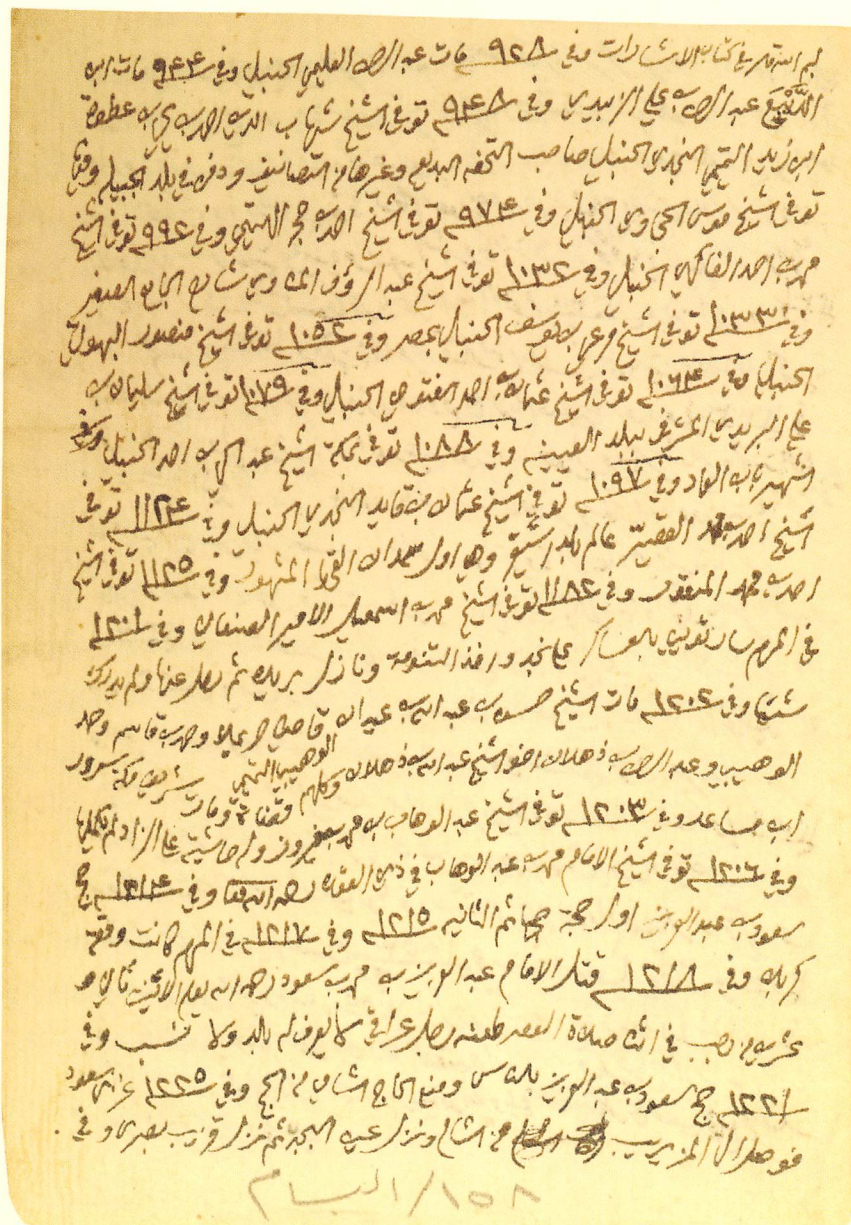 قال في كتاب الاشارات وفي ٩٢٨ مات عبد الرحمن العليمي الحنبلي وفي ٩٤٤ مات ابن
الديبع عبد الرحمن بن علي الزبيدي وفي ٩٤٨ توفي الشيخ شهاب الدين احمد بن يحي بن عطوة
ابن زيد التميمي النجدي الحنبلي صاحب التحفه البديعه وغيرها من التصانيف ودفن في بلد الجبيله وفيها
توفي الشيخ موسى الحجاوي الحنبلي وفي ٩٧٤ توفي الشيخ احمد بن حجر الهيتمي وفي ٩٩٢ توفي الشيخ
محمد بن احمد الفاكهي الحنبلي وفي ١٠٣٢ توفي الشيخ عبد الرؤف المناوي شارح الجامع الصغير
وفي ١٠٣٣ توفي الشيخ مرعي بن يوسف الحنبلي بمصر وفي ١٠٥٢ توفي الشيخ منصور البهوتي
الحنبلي وفي ١٠٦٤ توفي الشيخ عثمان بن احمد الفتوحي الحنبلي وفي ١٠٧٩ توفي الشيخ سليمان بن
علي في بلد العيينه وفي ١٠٨٨ توفي بمكة الشيخ عبد الحي بن احمد الحنبلي
الشهير بابن العماد وفي ١٠٩٧ توفي الشيخ عثمان بن قايد النجدي الحنبلي وفي ١١٢٤ توفي
الشيخ احمد بن محمد القصير عالم بلد اشيقر وهي اول سحدان القحط المشهور وفي ١١٢٥ توفي الشيخ
احمد بن محمد المنقور وفي ١١٨٢ توفي الشيخ محمد بن اسمعيل الامير الصنعاني وفي ١٢٠١
في المحرم سار ثويني بالعساكر على نجد واخذ التنومة ونازل بريده ثم رحل عنها ولم يدرك
شيئا وفي ١٢٠٢ مات الشيخ حسن بن عبد الله بن عيدان قاضي حريملا وحمد بن قاسم وحمد
الوهيبي وعبد الرحمن بن ذهلان اخو الشيخ عبد الله بن ذهلان وكلهم قضاة ومات شريف مكة سرور
الوهيبي التميمي
ابن مساعد وفي ١٢٠٣ توفي الشيخ عبد الوهاب بن محمد بن فيروز وله حاشية على الزاد لم يكملها
وفي ١٢٠٦ توفي الشيخ الامام محمد بن عبد الوهاب في ذي القعدة رحمه الله تعالى وفي ١٢١٤ حج
سعود بن عبد العزيز اول حجة حجها ثم الثانيه ١٢١٥ وفي ١٢١٧ في المحرم كانت وقعة
كربلا وفي ١٢١٨ قتل الامام عبد العزيز بن محمد بن سعود رحمه الله يوم الاثنين ثاني و
عشرين من رجب في اثناء صلاة العصر طعنه رجل عراقي لا يعرف له بلد ولا نسب وفي
١٢٢١ حج سعود بن عبد العزيز بالناس ومنع الحاج الشامي من الحج وفي ١٢٢٥ غزى سعود
فوصل الى المزيريب من الشام ونزل عين البجه ثم نزل قرب بصرى وفي
١٥٨ / البسام